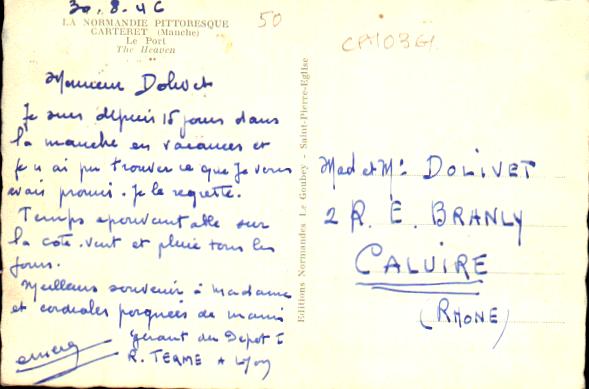 30.8.46
LA NORMANDIE PITTORESQUE
CARTERET (Manche)
Le Port
The Heaven
50
CP1036
Monsieur Dolivet
Je suis depuis 15 jours dans
la manche en vacances et
je n ai pu trouver ce que Je vous
avais promis. Je le regrette.
Temps epouvantable sur
la côte. vent et pluie tous les
jours.
Meilleurs souvenir à Madame
et cordiales poignées de mains
Gérant du Depot
R. TERME à Lyon
Editions Normandes Le Goubey - Saint-Pierre-Eglise
Mad et Mr DOLIVET
2 R. E. BRANLY
CALUIRE
(RHONE)